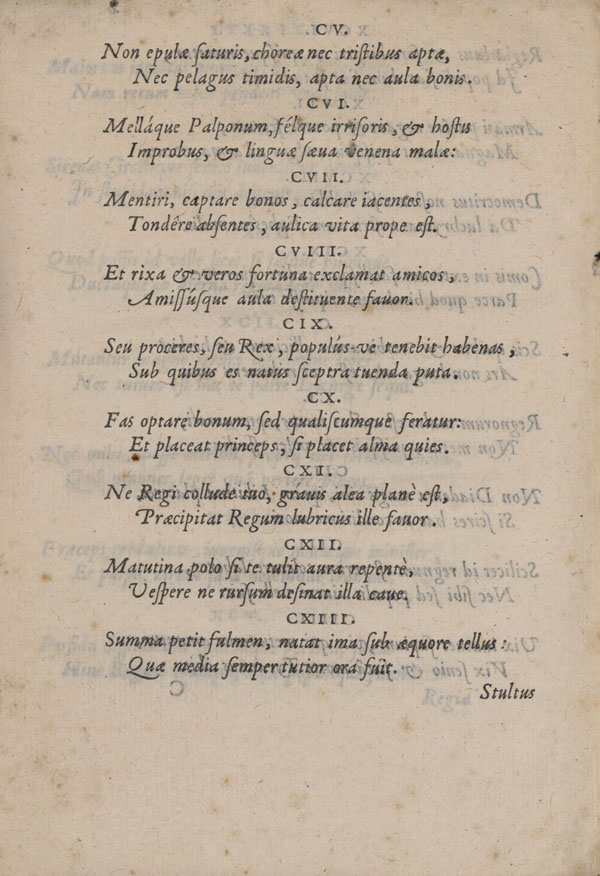 CV.
Non epulæ saturis, choreæ nec tristibus aptæ,
Nec pelagus timidis, apta nec aula bonis.
CVI.
Melláque Palponum, félque irrisoris, & hostis
Improbus, & linguæ sæua venena malæ:
CVII.
Mentiri, captare bonos, calcare iacentes,
Tondére absentes, aulica vita prope est.
CVIII.
Et rixa & veros fortuna exclamat amicos,
Amissúsque aula destituente fauor.
CIX.
Seu proceres, seu Rex, populús-ve tenebit habenas,
Sub quibus es natus sceptra tuenda puta.
CX.
Fas optare bonum, sed qualiscumque feratur:
Et placeat princeps, si placet alma quies.
CXI.
Ne Regi collude tuo, grauis alea planè est,
Præcipitat Regum lubricus ille fauor.
CXII.
Matutina polo si te tulit aura repentè,
Vespere ne rursum desinat illa caue.
CXIII.
Summa petit fulmen, natat ima sub æquore tellus:
Quæ media semper tutior ora fuit.
Stultus